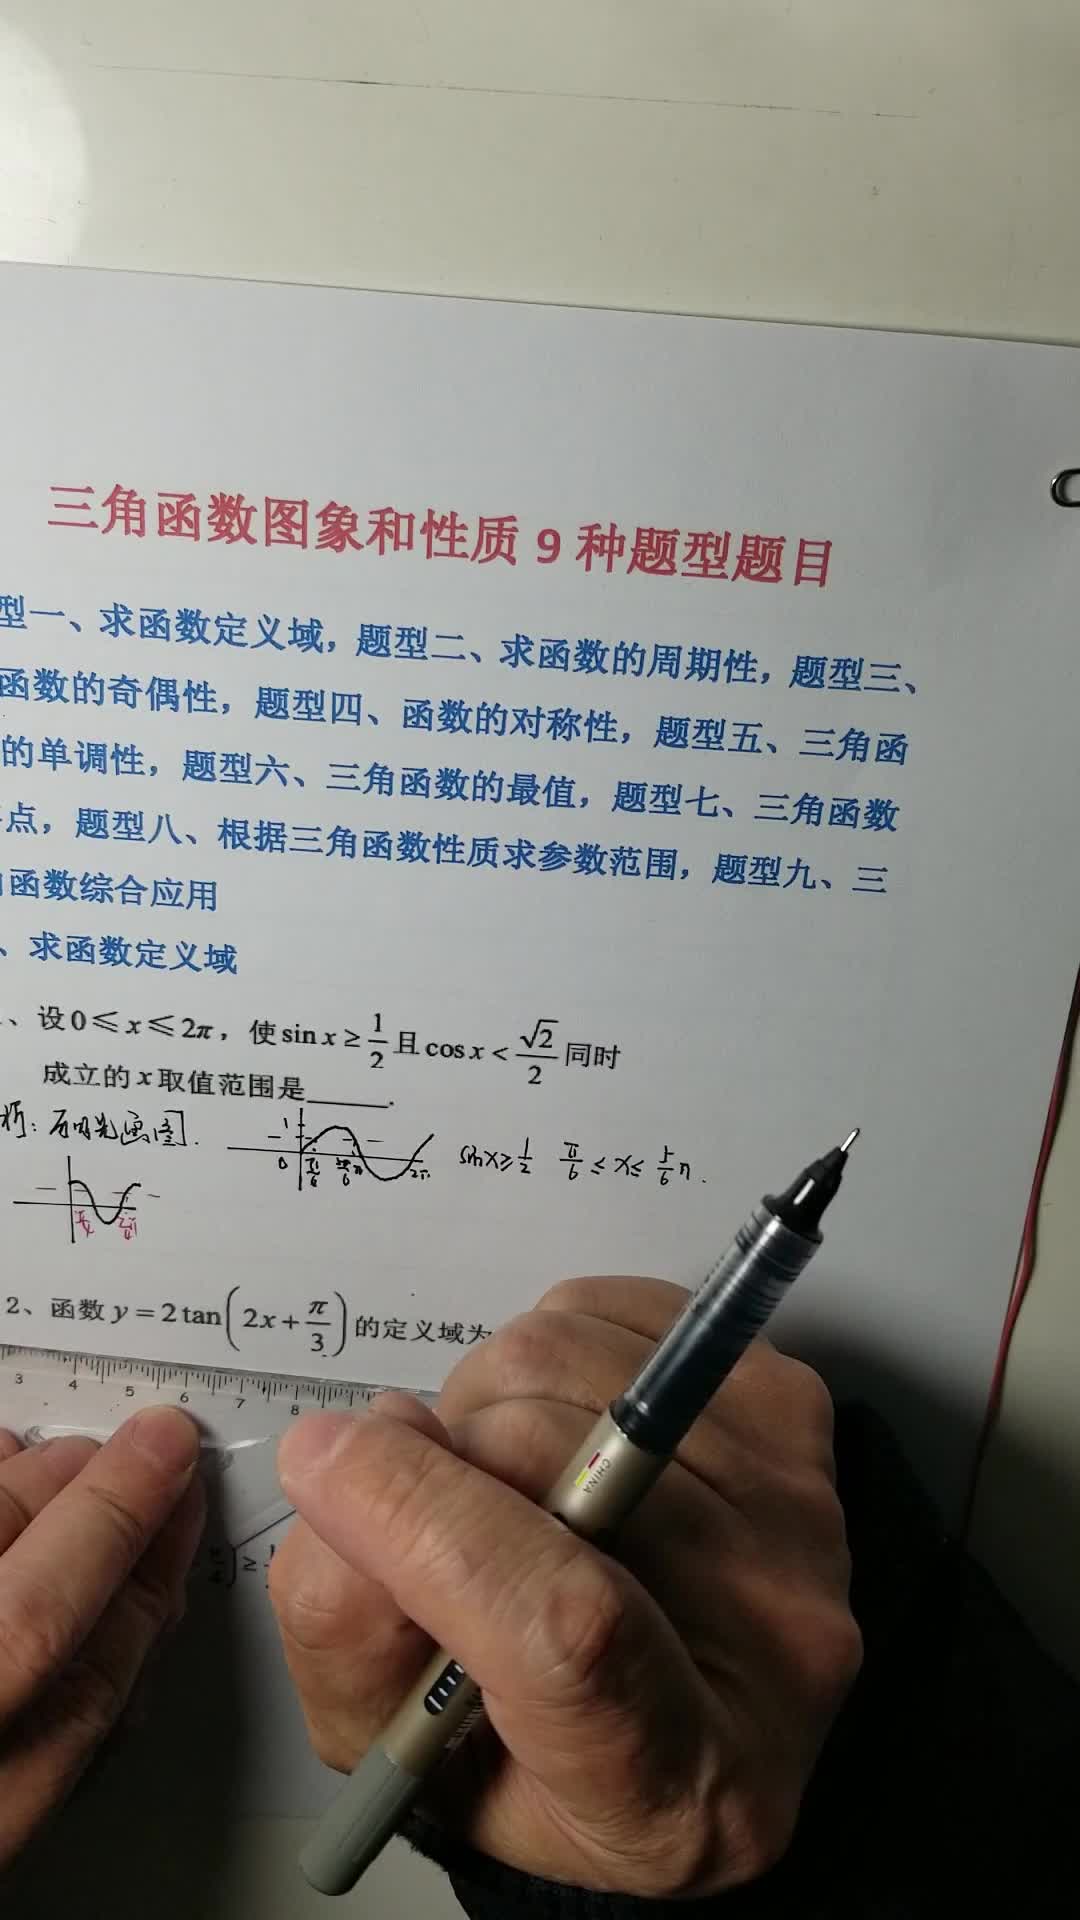 三角函数图象和性质9种题型题目
型一、求函数定义域，题型二、求函数的周期性，题型三、
函数的奇偶性，题型四、函数的对称性，题型五、三角函
的单调性，题型六、三角函数的最值，题型七、三角函数
点，题型八、根据三角函数性质求参数范围，题型九、三
函数综合应用
、求函数定义域
、设0≤x≤2π，使sin x≥1/2且cos x<√2/2同时
成立的x取值范围是______.
析: 画图.
1
0 π/6 5/6π 2π
sinx≥1/2 π/6≤x≤5/6π.
2、函数y=2tan(2x+π/3)的定义域为
3 4 5 6 7 8
≥
CHINA